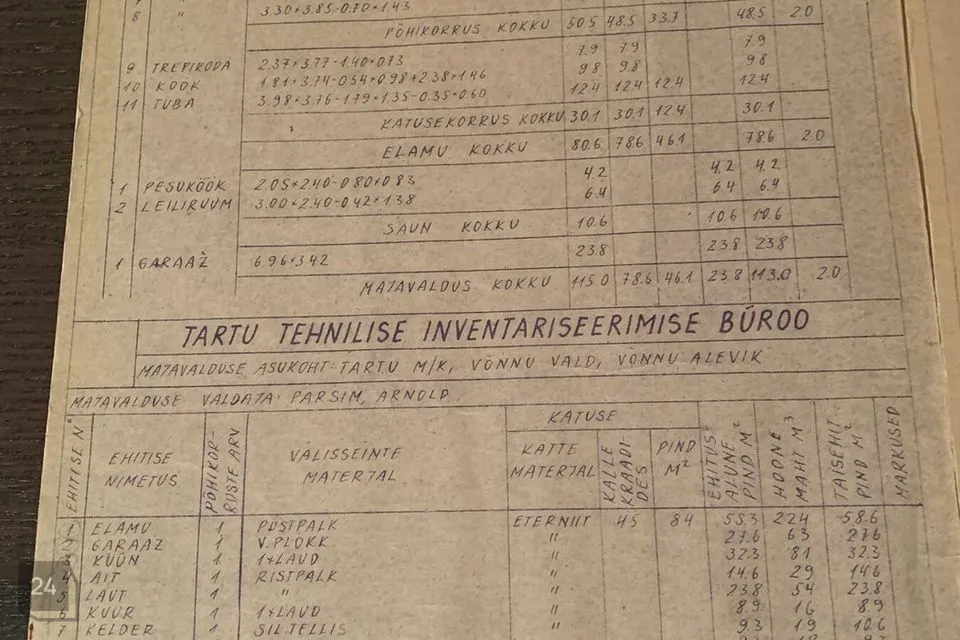 8 " 3.30×3.85-0.70×1.43
PÕHIKORRUS KOKKU 50.5 48.5 33.7 48.5 2.0
9 TREPIKODA 2.37×3.77-1.40×0.73 7.9 7.9 7.9
10 KÖÖK 1.81×3.74-0.54×0.98+2.38×1.46 9.8 9.8 9.8
11 TUBA 3.98×3.76-1.79×1.35-0.35×0.60 12.4 12.4 12.4 12.4
KATUSEKORRUS KOKKU 30.1 30.1 12.4 30.1
ELAMU KOKKU 80.6 78.6 46.1 78.6 2.0
1 PESUKÖÖK 2.05×2.40-0.80×0.83 4.2 4.2 4.2
2 LEILIRUUM 3.00×2.40-0.42×1.38 6.4 6.4 6.4
SAUN KOKKU 10.6 10.6 10.6
1 GARAAŽ 6.96×3.42 23.8 23.8 23.8
MATAVALDUS KOKKU 115.0 78.6 46.1 23.8 113.0 2.0
TARTU TEHNILISE INVENTARISEERIMISE BÜROO
MATAVALDUSE ASUKOHT: TARTU M/K, VÕNNU VALD, VÕNNU ALEVIK
MATAVALDUSE VALDAJA: PARSIM, ARNOLD
EHITISE N°
EHITISE NIMETUS
PÕHIKOR-
RUSTE ARV
VÄLISSEINTE
MATERJAL
KATUSE
KATTE
MATERJAL
KALLE
KRAADI-
DES
PIND
M²
EHITUS-
ALUNE
PIND M²
HOONE
MAHT M³
TÄISEHIT.
PIND M²
MÄRKUSED
1 ELAMU 1 PÜSTPALK ETERNIIT 45 84 55.3 224 58.6
2 GARAAŽ 1 V.PLOKK " 27.6 63 27.6
3 KÜÜN 1 1×LAUD " 32.3 81 32.3
4 AIT 1 RISTPALK " 14.6 29 14.6
5 LAUT 1 " " 23.8 54 23.8
6 KUUR 1 1×LAUD " 8.9 16 8.9
7 KELDER 1 SIL.TELLIS " 9.3 19 10.6
24